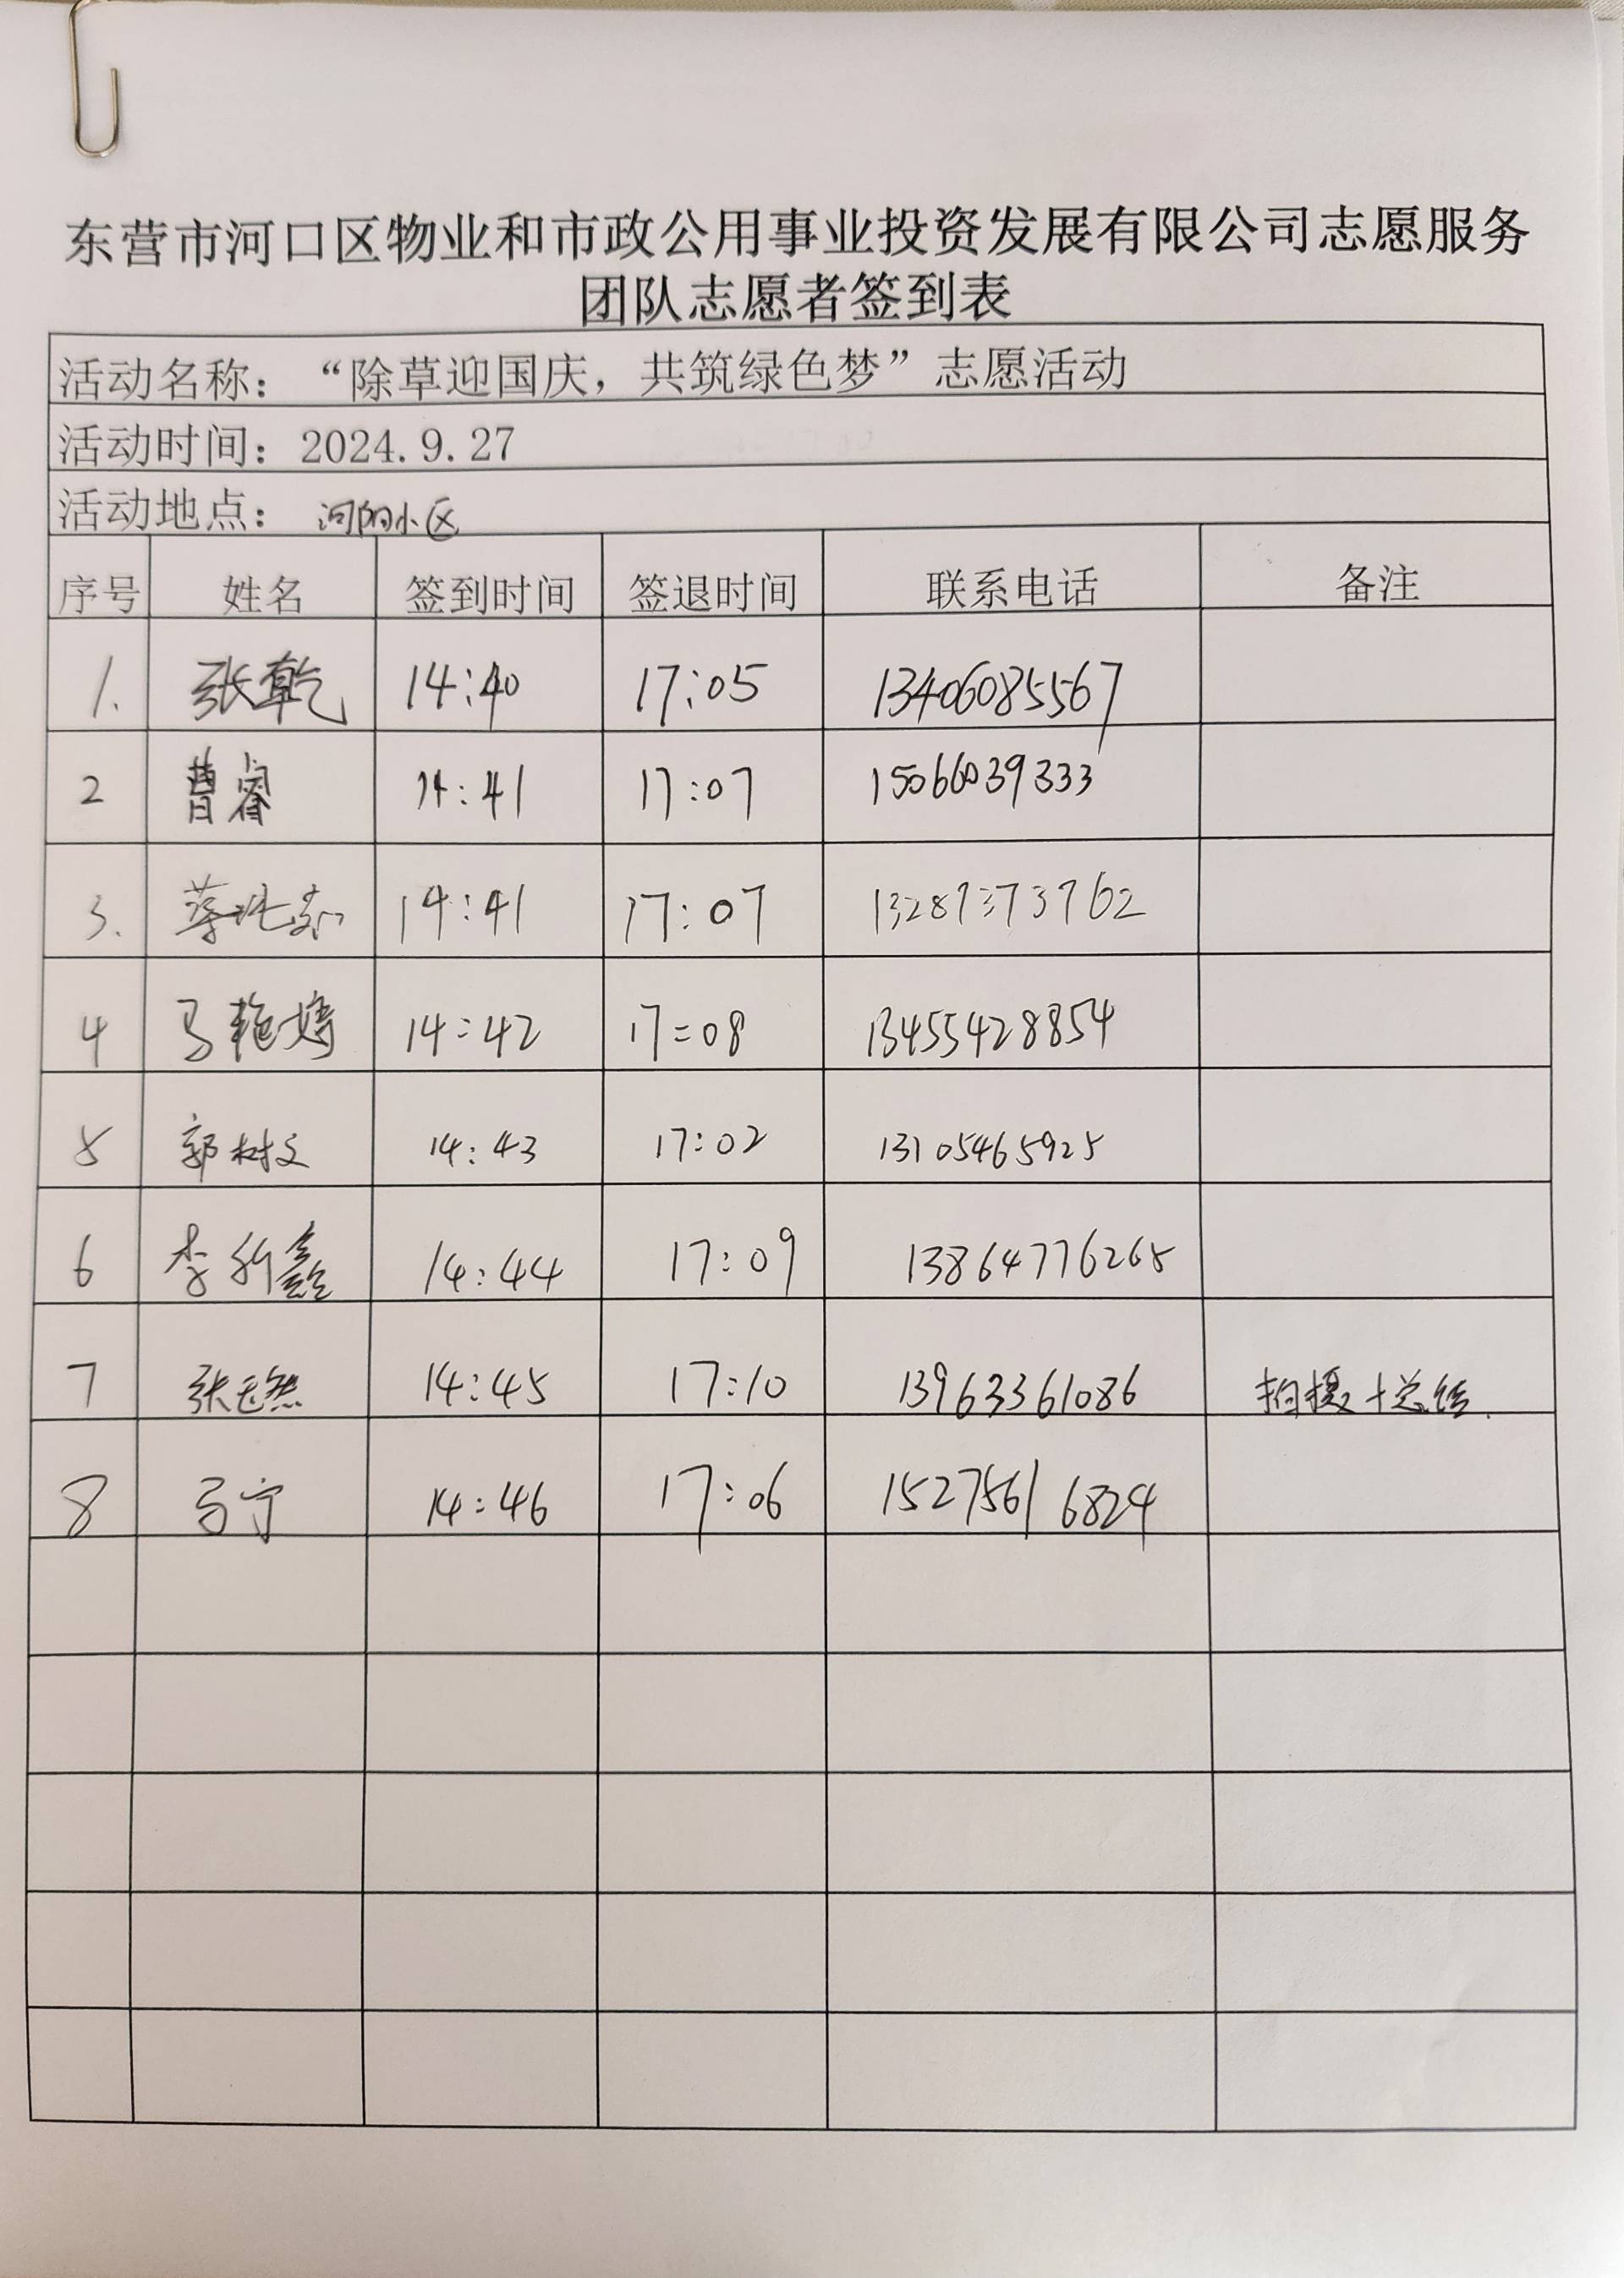 东营市河口区物业和市政公用事业投资发展有限公司志愿服务
团队志愿者签到表
活动名称：“除草迎国庆，共筑绿色梦”志愿活动
活动时间：2024.9.27
活动地点： 河阳小区
序号 姓名 签到时间 签退时间 联系电话 备注
1. 张乾 14:40 17:05 13406085567
2 曹睿 14:41 17:07 15066039333
3. 14:41 17:07 13287373762
4 马艳婷 14:42 17:08 13455428854
5 郭树文 14:43 17:02 13105465925
6 李 鑫 14:44 17:09 13864776265
7 张 然 14:45 17:10 13963361086 拍摄+总结.
8 马宁 14:46 17:06 15275616824